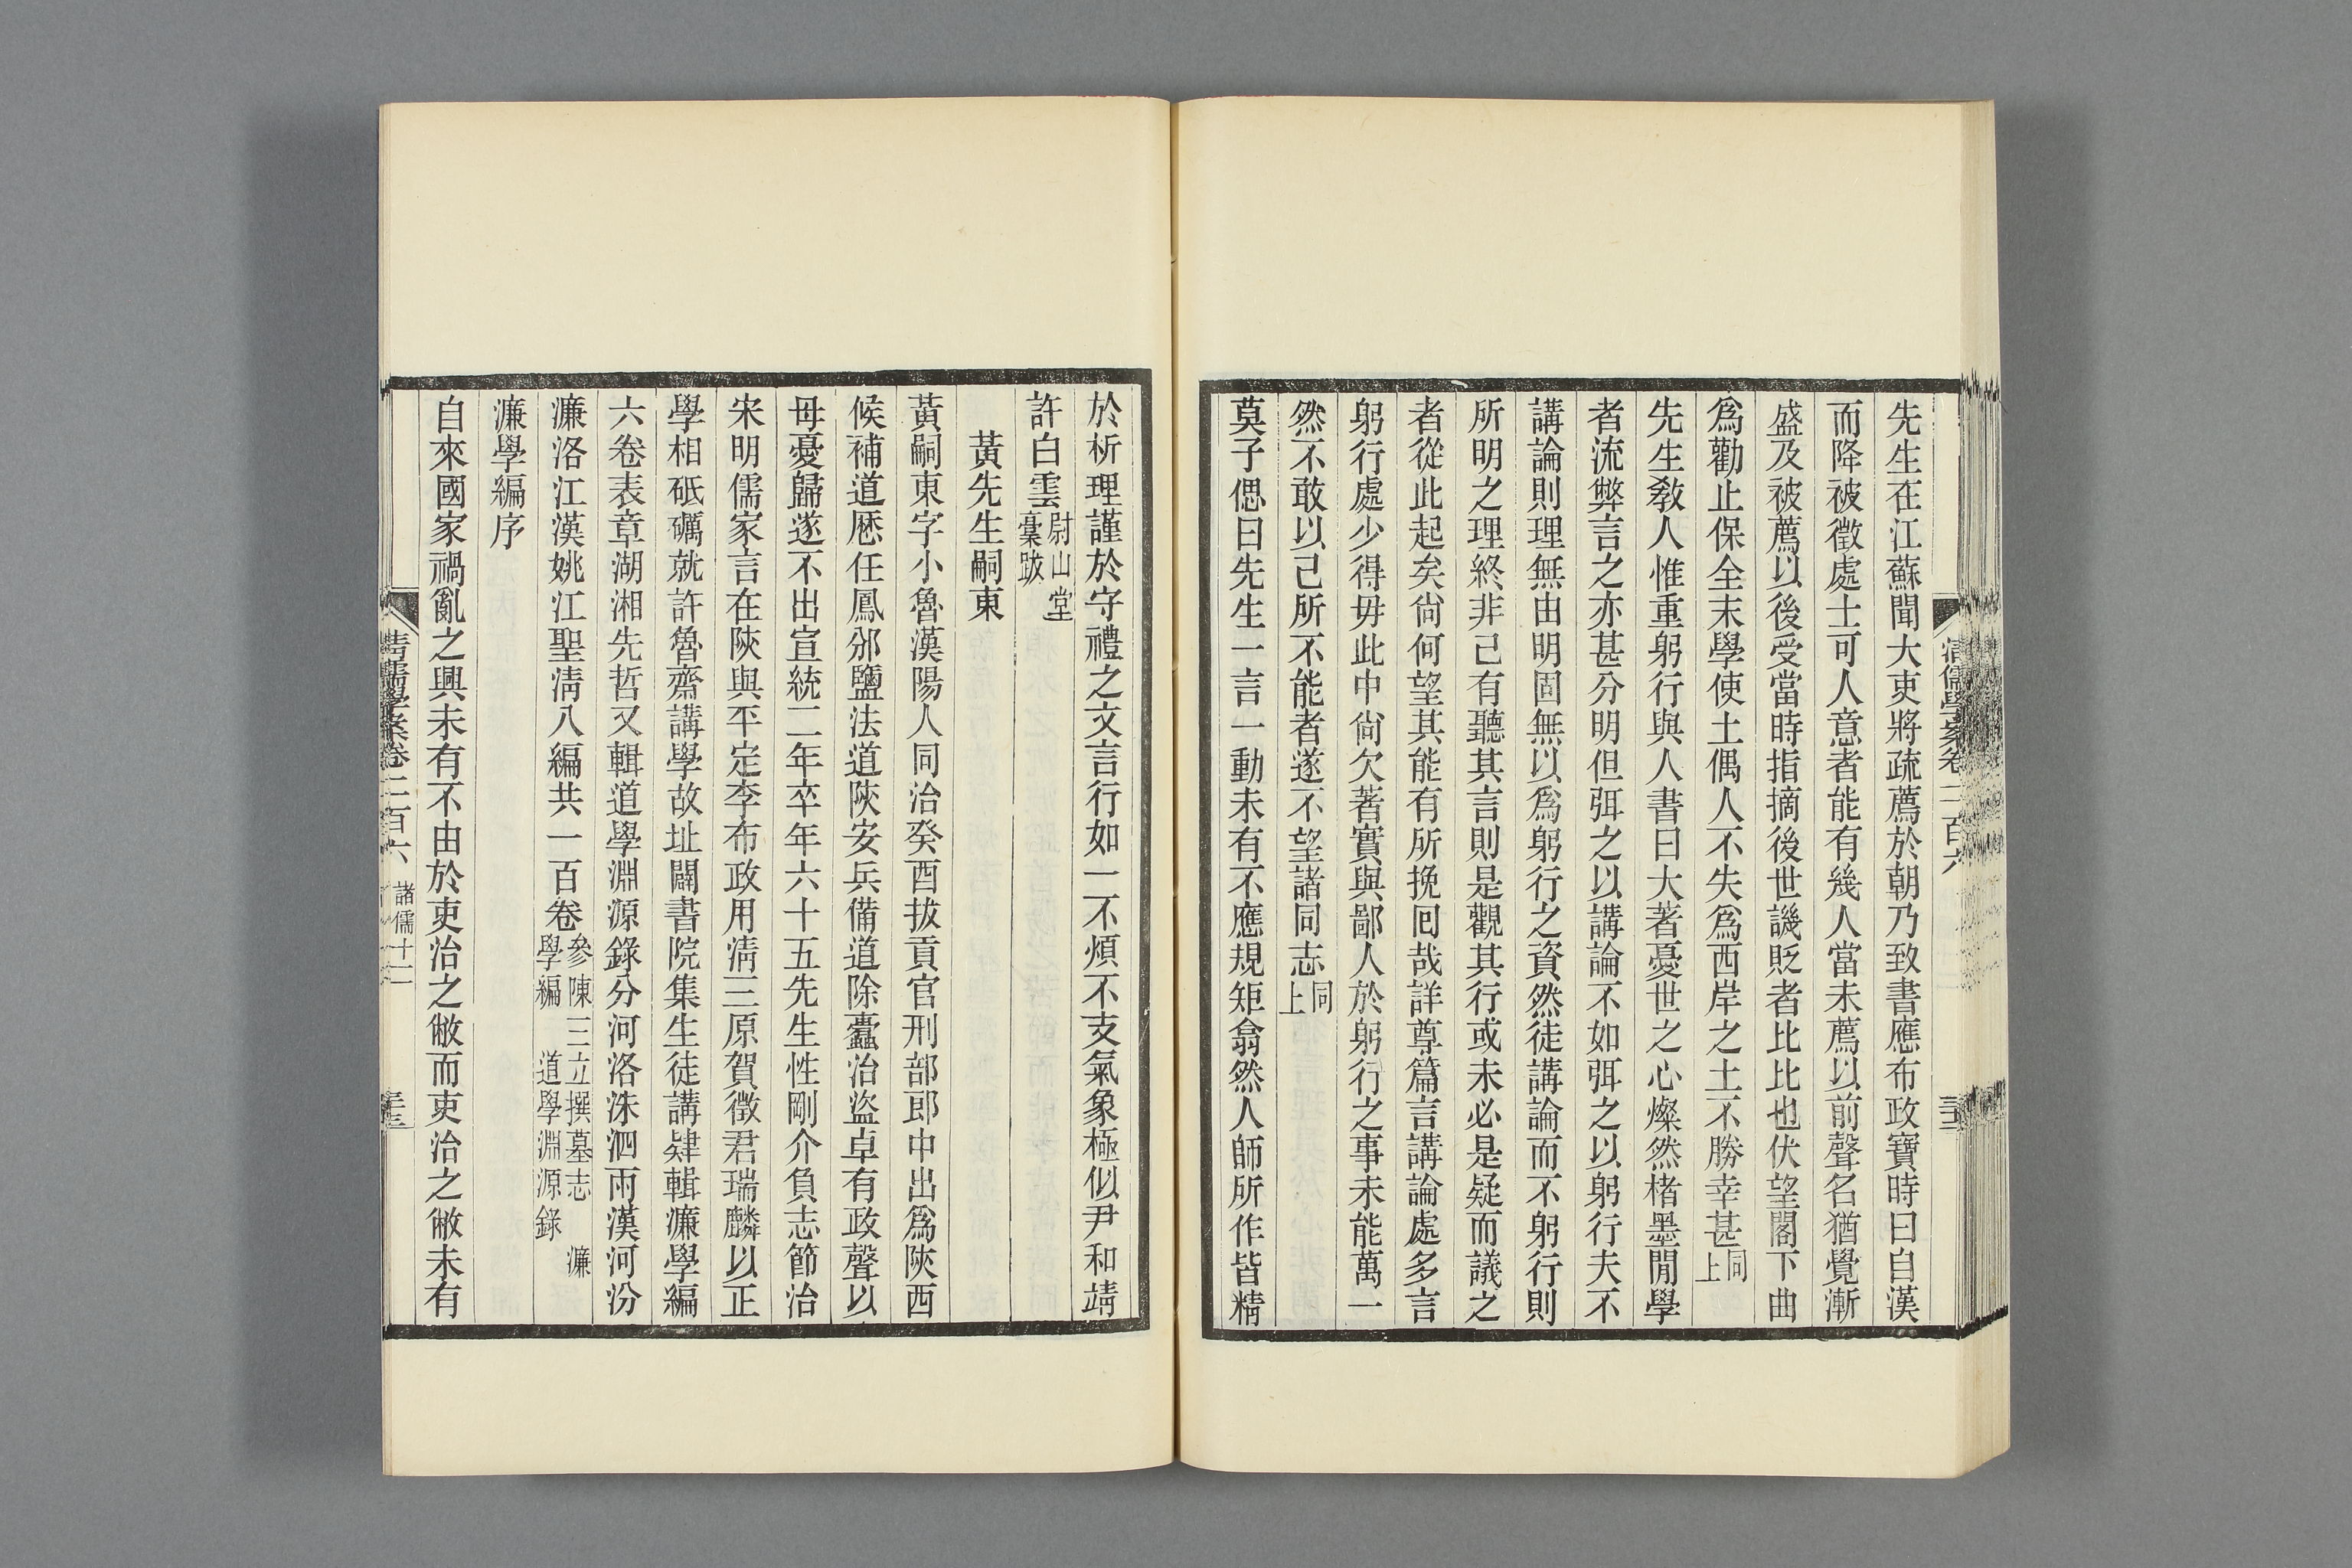 先生在江蘇聞大吏將疏薦於朝乃致書應布政寶時曰自漢
而降被徵處士可人意者能有幾人當未薦以前聲名猶覺漸
盛及被薦以後受當時指摘後世譏貶者比比也伏望閣下曲
爲勸止保全末學使土偶人不失爲西岸之土不勝幸甚同上
先生敎人惟重躬行與人書曰大著憂世之心燦然楮墨閒學
者流弊言之亦甚分明但弭之以講論不如弭之以躬行夫不
講論則理無由明固無以爲躬行之資然徒講論而不躬行則
所明之理終非己有聽其言則是觀其行或未必是疑而議之
者從此起矣尙何望其能有所挽回哉詳尊篇言講論處多言
躬行處少得毋此中尙欠著實與鄙人於躬行之事未能萬一
然不敢以己所不能者遂不望諸同志同上
莫子偲曰先生一言一動未有不應規矩翕然人師所作皆精
清儒學案卷二百六
於析理謹於守禮之文言行如一不煩不支氣象極似尹和靖
許白雲尉山堂藁跋
黃先生嗣東
黃嗣東字小魯漢陽人同治癸酉拔貢官刑部郎中出爲陝西
候補道歷任鳳邠鹽法道陝安兵備道除蠹治盜卓有政聲以
母憂歸遂不出宣統二年卒年六十五先生性剛介負志節治
宋明儒家言在陝與平定李布政用淸三原賀徵君瑞麟以正
學相砥礪就許魯齋講學故址闢書院集生徒講肄輯濂學編
六卷表章湖湘先哲又輯道學淵源錄分河洛洙泗兩漢河汾
濂洛江漢姚江聖淸八編共一百卷參陳三立撰墓志 濂學編 道學淵源錄
濂學編序
自來國家禍亂之興未有不由於吏治之敝而吏治之敝未有
清儒學案卷二百六 諸儒十二